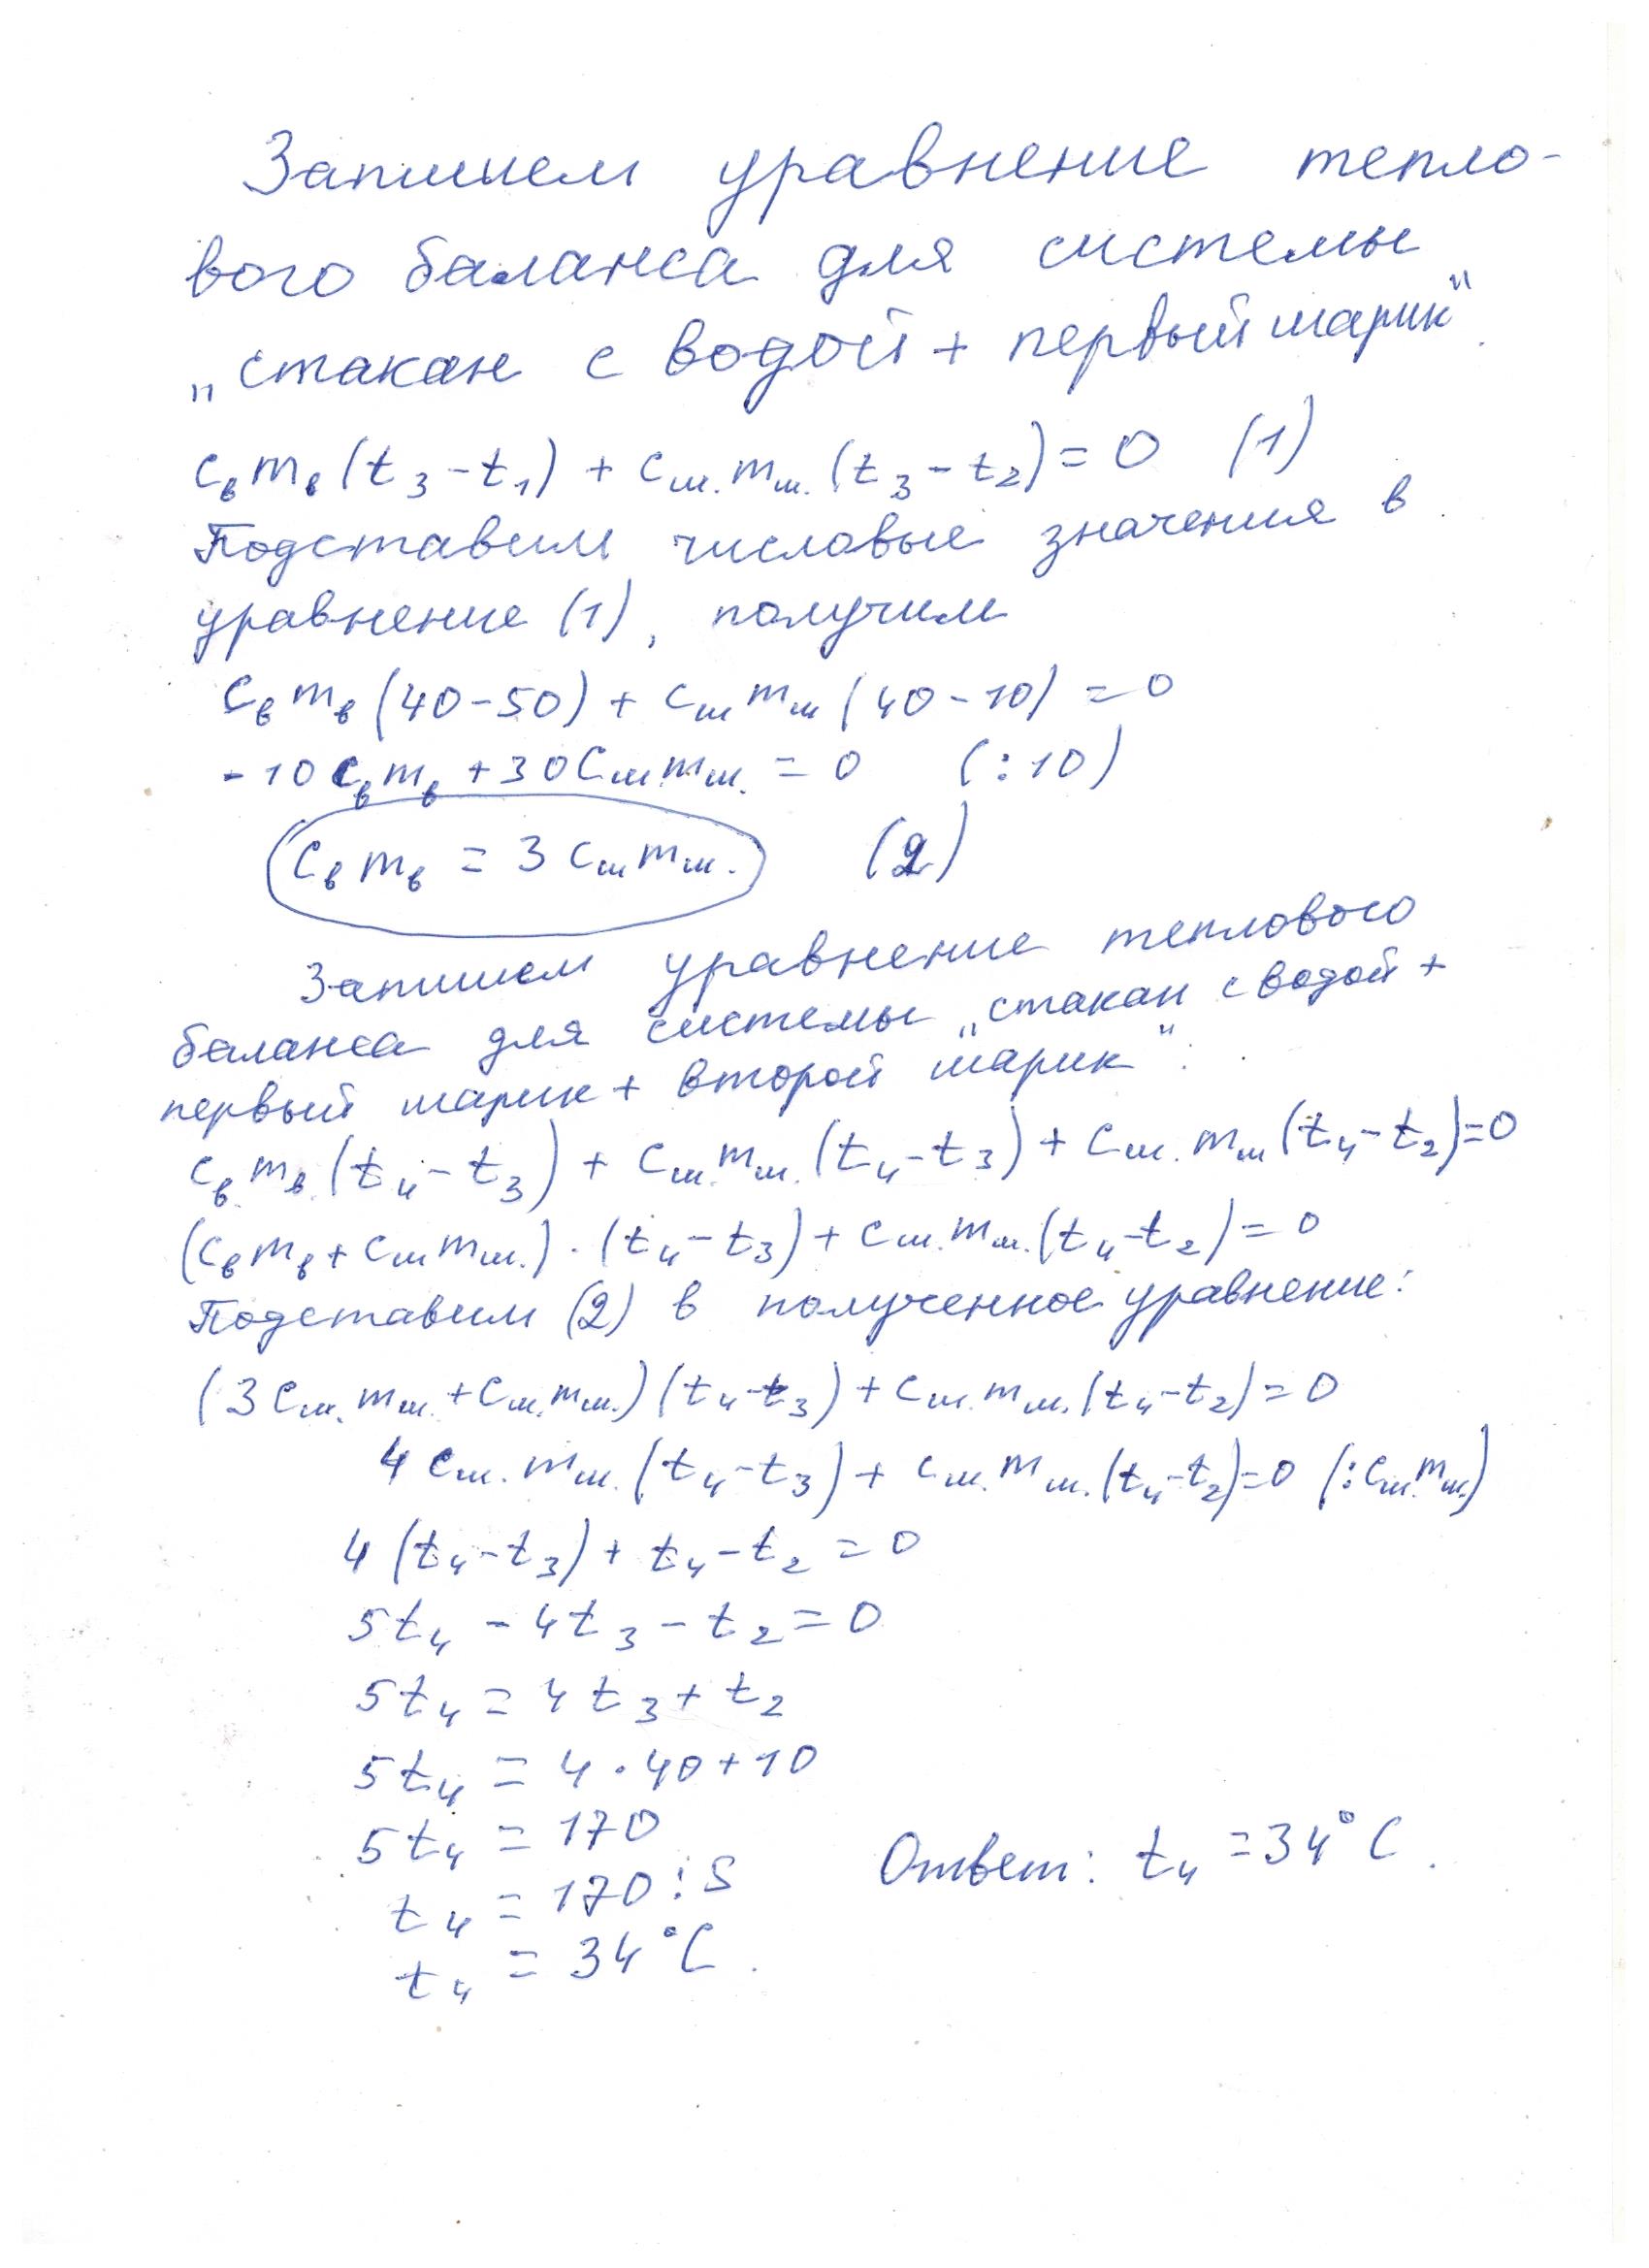 Запишем уравнение тепло-
вого баланса для системы
„стакан с водой + первый шарик“.
cвmв(t3-t1) + cш.mш.(t3-t2)=0 (1)
Подставим числовые значения в
уравнение (1), получим
cвmв(40-50) + cшmш(40-10)=0
-10cвmв+30cшmш.=0 (:10)
cвmв = 3cшmш. (2)
Запишем уравнение теплового
баланса для системы „стакан с водой +
первый шарик + второй шарик“:
cвmв.(t4-t3) + cш.mш.(t4-t3) + cш.mш(t4-t2)=0
(cвmв+cшmш.)·(t4-t3)+cш.mш.(t4-t2)=0
Подставим (2) в полученное уравнение:
(3cш.mш.+cш.mш.)(t4-t3)+cш.mш.(t4-t2)=0
4cш.mш.(t4-t3)+cш.mш.(t4-t2)=0 (:cш.mш.)
4(t4-t3)+t4-t2=0
5t4-4t3-t2=0
5t4=4t3+t2
5t4=4·40+10
5t4=170
t4=170:5
t4=34°C.
Ответ: t4=34°C.